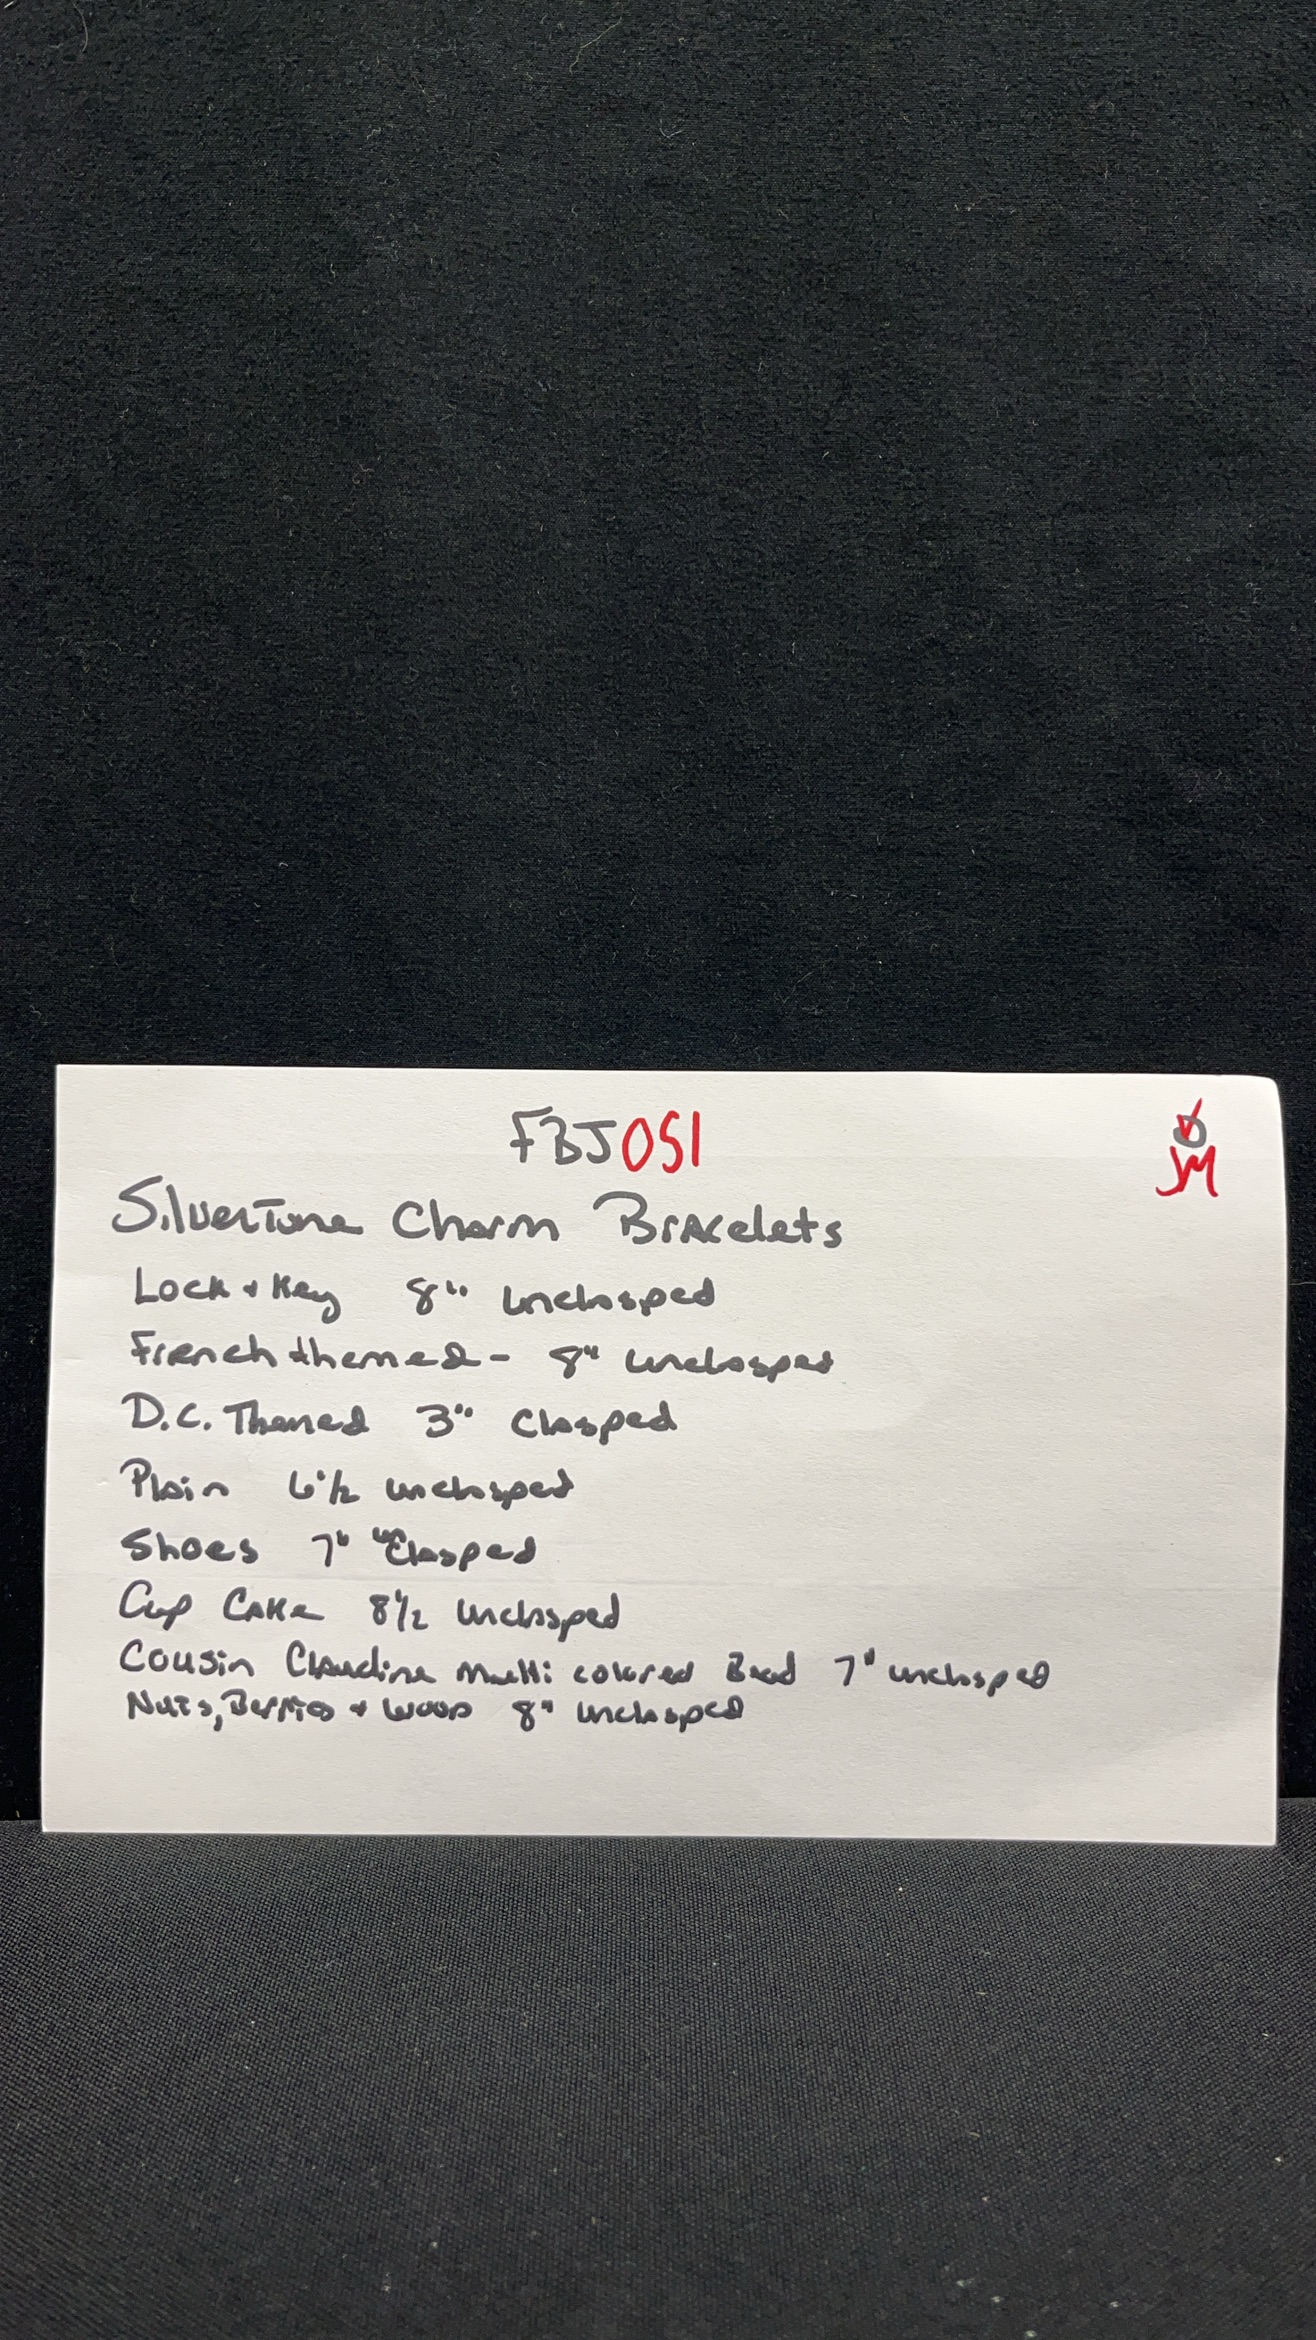 FBJ051
JM
Silvertone Charm Bracelets
Lock + Key 8" unclasped
French themed - 8" unclasped
D.C. Themed 3" Clasped
Plain 6 1/2 unclasped
Shoes 7" unclasped
Cup Cake 8 1/2 unclasped
Cousin Claudine Multi colored Bead 7" unclasped
Nuts, Berries + Wood 8" unclasped